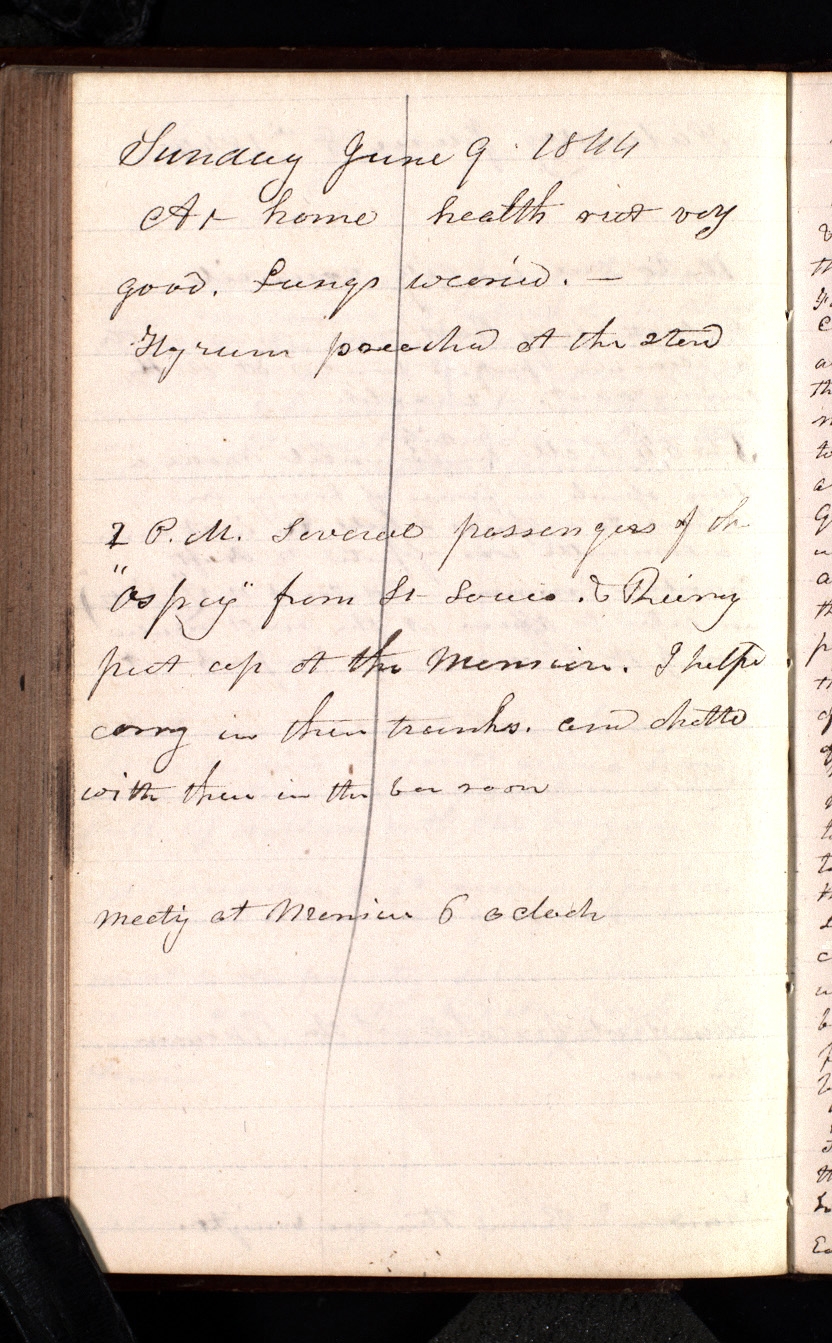 Sunday June 9. 1844
At home health not very
good. Lungs wearied. —
Hyrum preached at the stand
2 P.M. Several passengers of the
"Osprey" from St Louis. & Quincy
put up at the Mansion. I helped
carry in their trunks. and chatted
with them in the bar room
meetig at Mansion 6 oclock